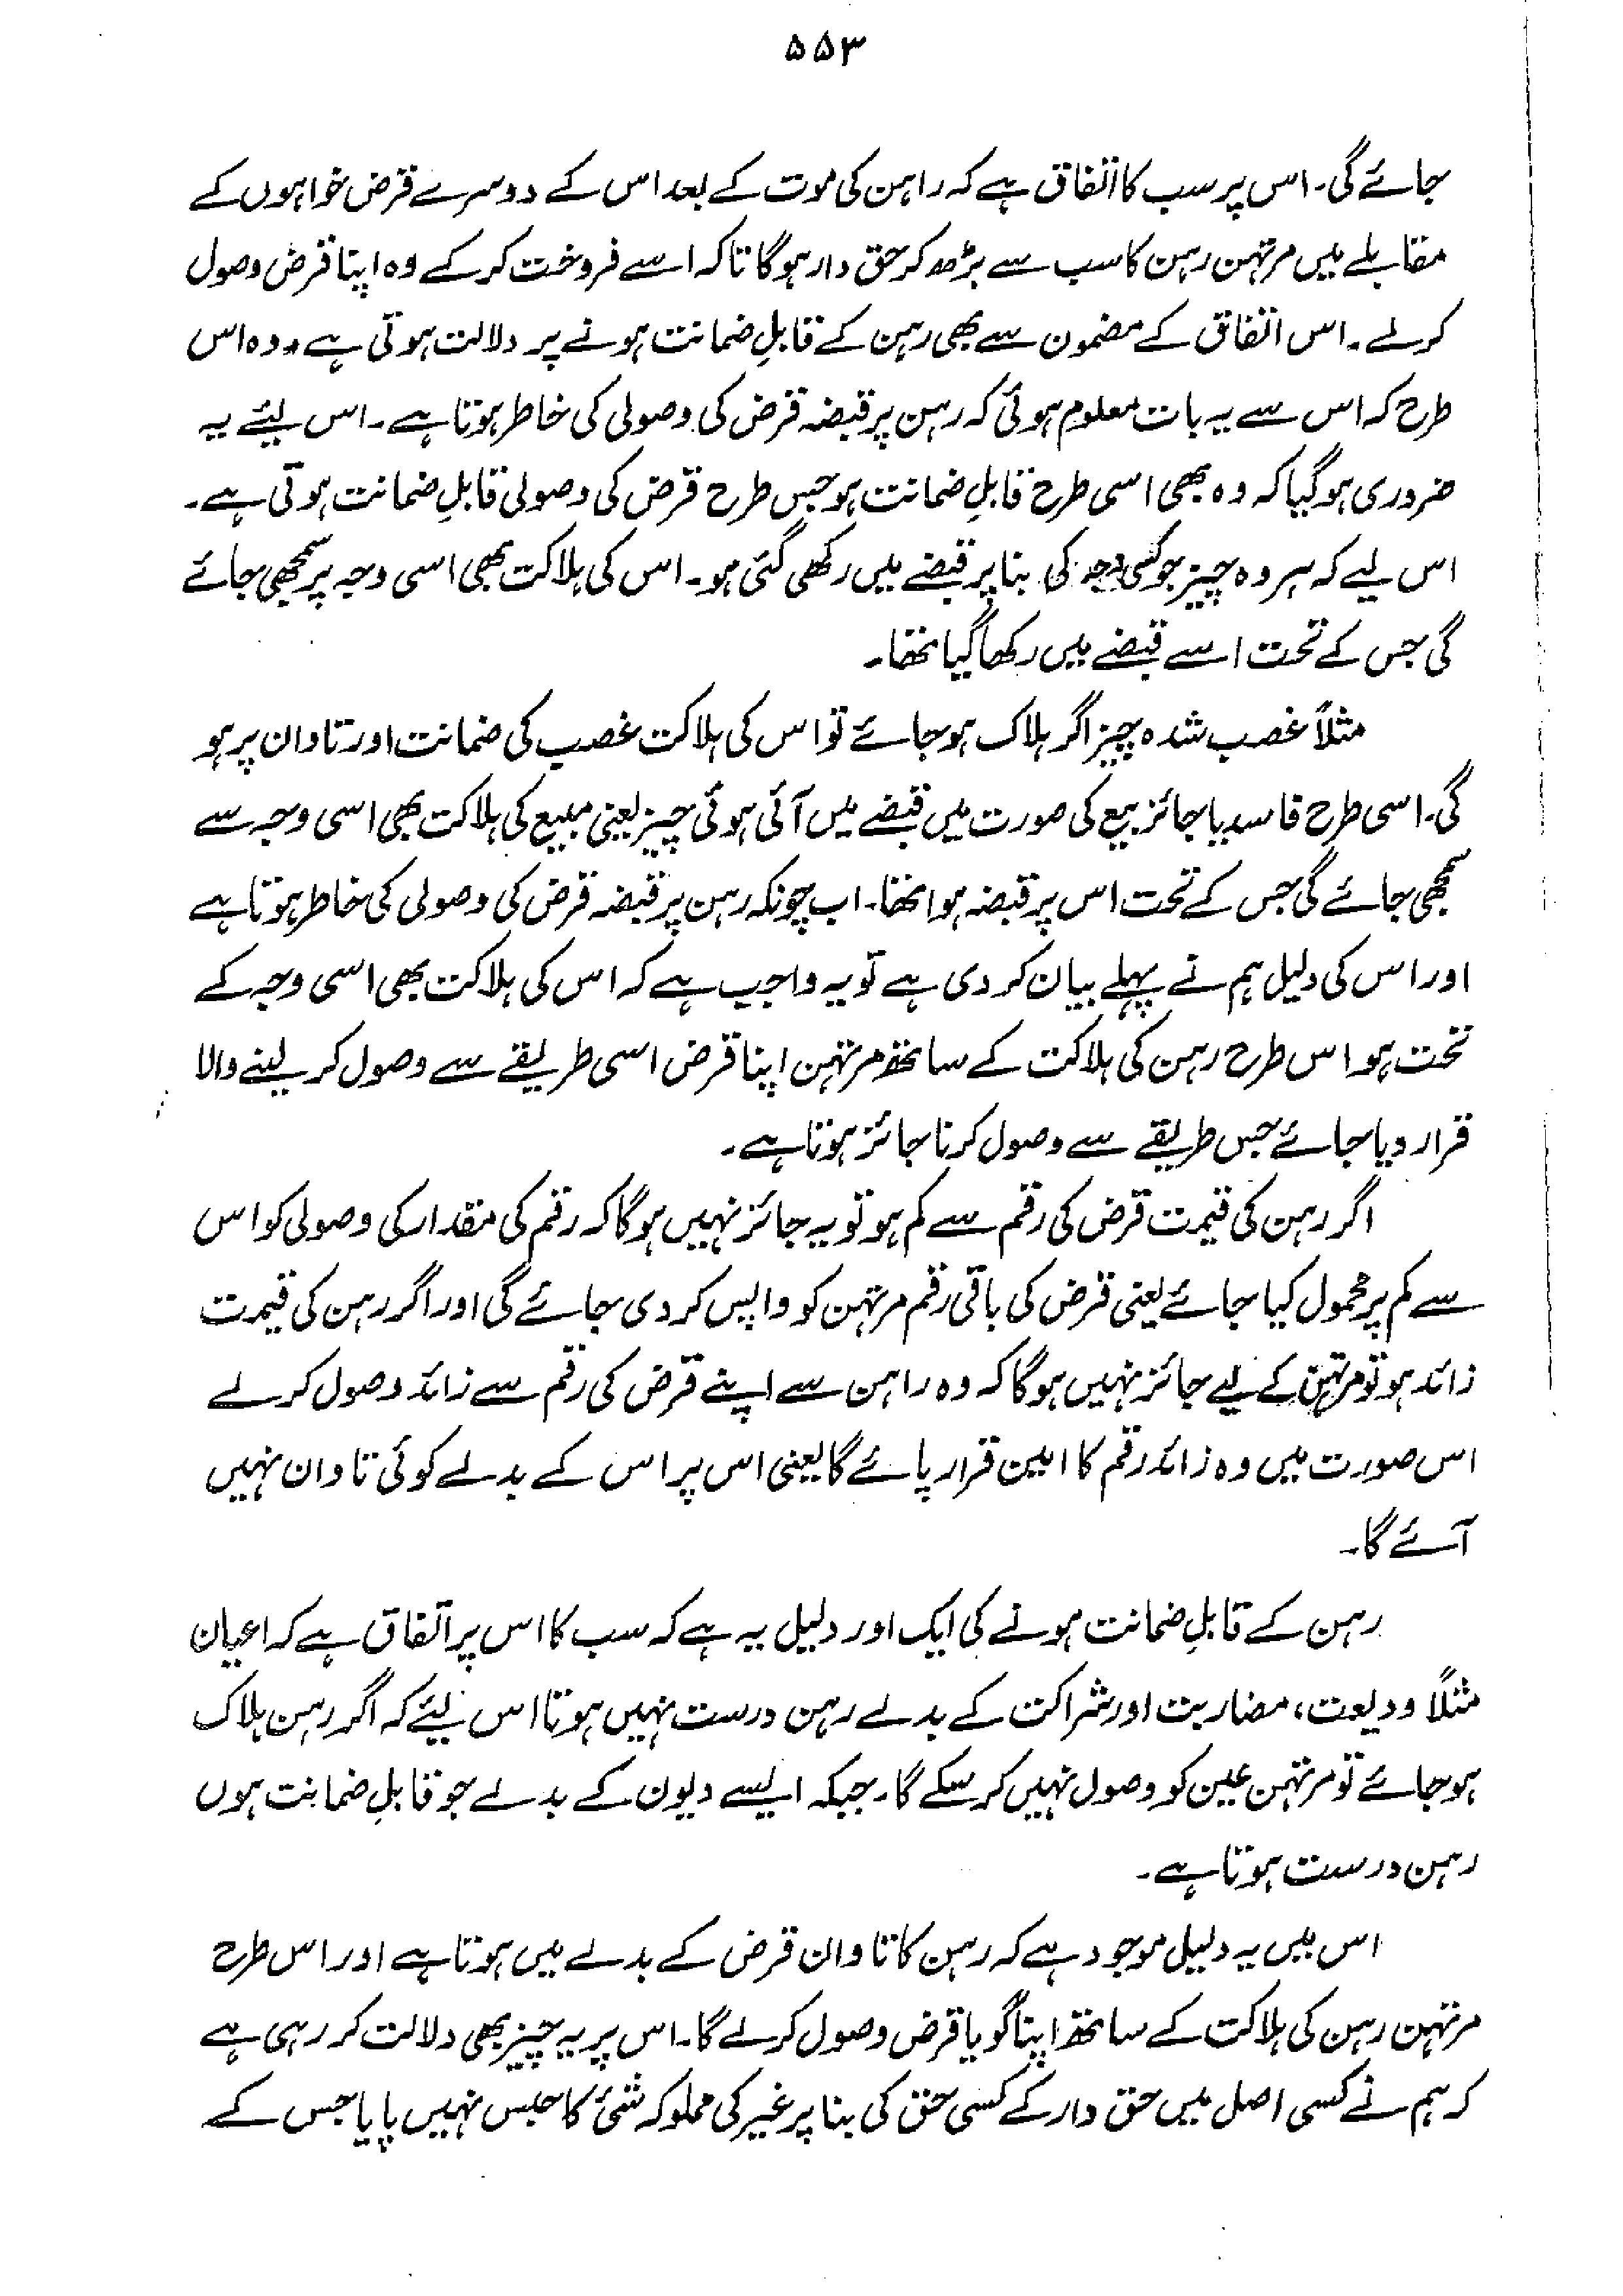 ۵۵۳
جائے گی۔ اس پر سب کا اتفاق ہے کہ راہن کی موت کے بعد اس کے دوسرے قرض خواہوں کے
مقابلے میں مرتہن رہن کا سب سے بڑھ کر حق دار ہوگا تاکہ اسے فروخت کرکے وہ اپنا قرض وصول
کرلے۔ اس اتفاق کے مضمون سے بھی رہن کے قابلِ ضمانت ہونے پر دلالت ہوتی ہے۔ وہ اس
طرح کہ اس سے یہ بات معلوم ہوئی کہ رہن پر قبضہ قرض کی وصولی کی خاطر ہوتا ہے۔ اس لیئے یہ
ضروری ہوگیا کہ وہ بھی اسی طرح قابلِ ضمانت ہو جس طرح قرض کی وصولی قابلِ ضمانت ہوتی ہے۔
اس لیے کہ ہر وہ چیز جو کسی وجہ کی بنا پر قبضے میں رکھی گئی ہو۔ اس کی ہلاکت بھی اسی وجہ پر سمجھی جائے
گی جس کے تحت اسے قبضے میں رکھا گیا تھا۔
مثلاً غصب شدہ چیز اگر ہلاک ہوجائے تو اس کی ہلاکت غصب کی ضمانت اور تاوان پر ہو
گی۔ اسی طرح فاسد یا جائز بیع کی صورت میں قبضے میں آئی ہوئی چیز یعنی مبیع کی ہلاکت بھی اسی وجہ سے
سمجھی جائے گی جس کے تحت اس پر قبضہ ہوا تھا۔ اب چونکہ رہن پر قبضہ قرض کی وصولی کی خاطر ہوتا ہے
اور اس کی دلیل ہم نے پہلے بیان کردی ہے تو یہ واجب ہے کہ اس کی ہلاکت بھی اسی وجہ کے
تحت ہو اس طرح رہن کی ہلاکت کے ساتھ مرتہن اپنا قرض اسی طریقے سے وصول کرلینے والا
قرار دیا جائے جس طریقے سے وصول کرنا جائز ہوتا ہے۔
اگر رہن کی قیمت قرض کی رقم سے کم ہو تو یہ جائز نہیں ہوگا کہ رقم کی مقدار کی وصولی کو اس
سے کم پر محمول کیا جائے یعنی قرض کی باقی رقم مرتہن کو واپس کردی جائے گی اور اگر رہن کی قیمت
زائد ہو تو مرتہن کے لیے جائز نہیں ہوگا کہ وہ راہن سے اپنے قرض کی رقم سے زائد وصول کرلے
اس صورت میں وہ زائد رقم کا امین قرار پائے گا یعنی اس پر اس کے بدلے کوئی تاوان نہیں
آئے گا۔
رہن کے قابلِ ضمانت ہونے کی ایک اور دلیل یہ ہے کہ سب کا اس پر اتفاق ہے کہ اعیان
مثلاً ودیعت، مضاربت اور شراکت کے بدلے رہن درست نہیں ہوتا اس لیئے کہ اگر رہن ہلاک
ہوجائے تو مرتہن عین کو وصول نہیں کرسکے گا۔ جبکہ ایسے دیون کے بدلے جو قابلِ ضمانت ہوں
رہن درست ہوتا ہے۔
اس میں یہ دلیل موجود ہے کہ رہن کا تاوان قرض کے بدلے میں ہوتا ہے اور اس طرح
مرتہن رہن کی ہلاکت کے ساتھ اپنا گویا قرض وصول کرلے گا۔ اس پر یہ چیز بھی دلالت کر رہی ہے
کہ ہم نے کسی اصل میں حق دار کے کسی حق کی بنا پر غیر کی مملوکہ شئ کا حبس نہیں پایا جس کے